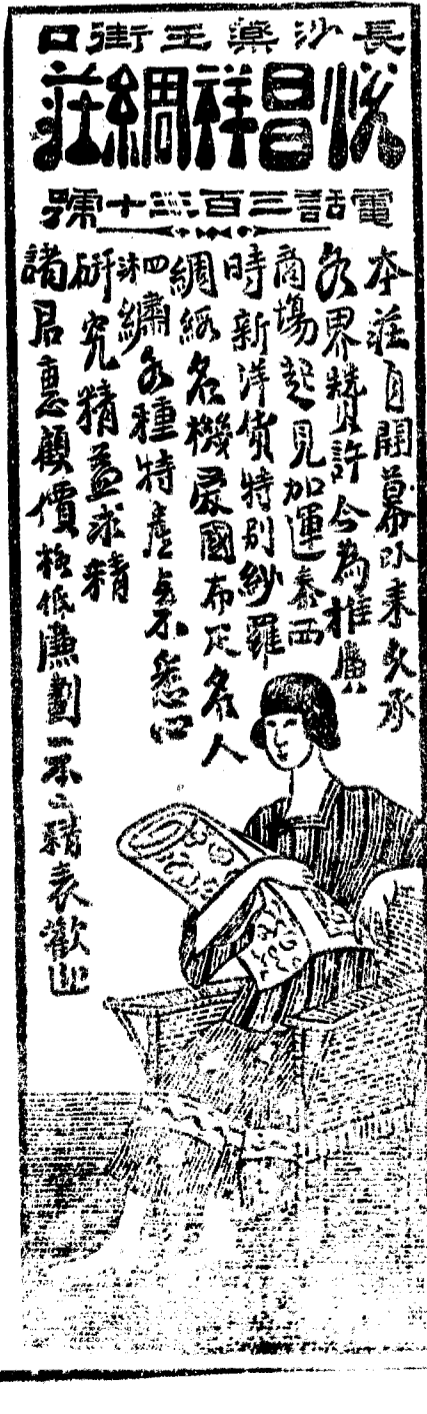 長沙藥王街口
悅昌祥綢莊
電話三百三十號
本莊自開幕以來久承
各界贊許今為推廣
商場起見加運泰西
時新洋貨特別紗羅
綢緞名機愛國布疋名人
四蘇繡各種特產無不悉心
研究精益求精
諸君惠顧價極低廉劃一不二藉表歡迎